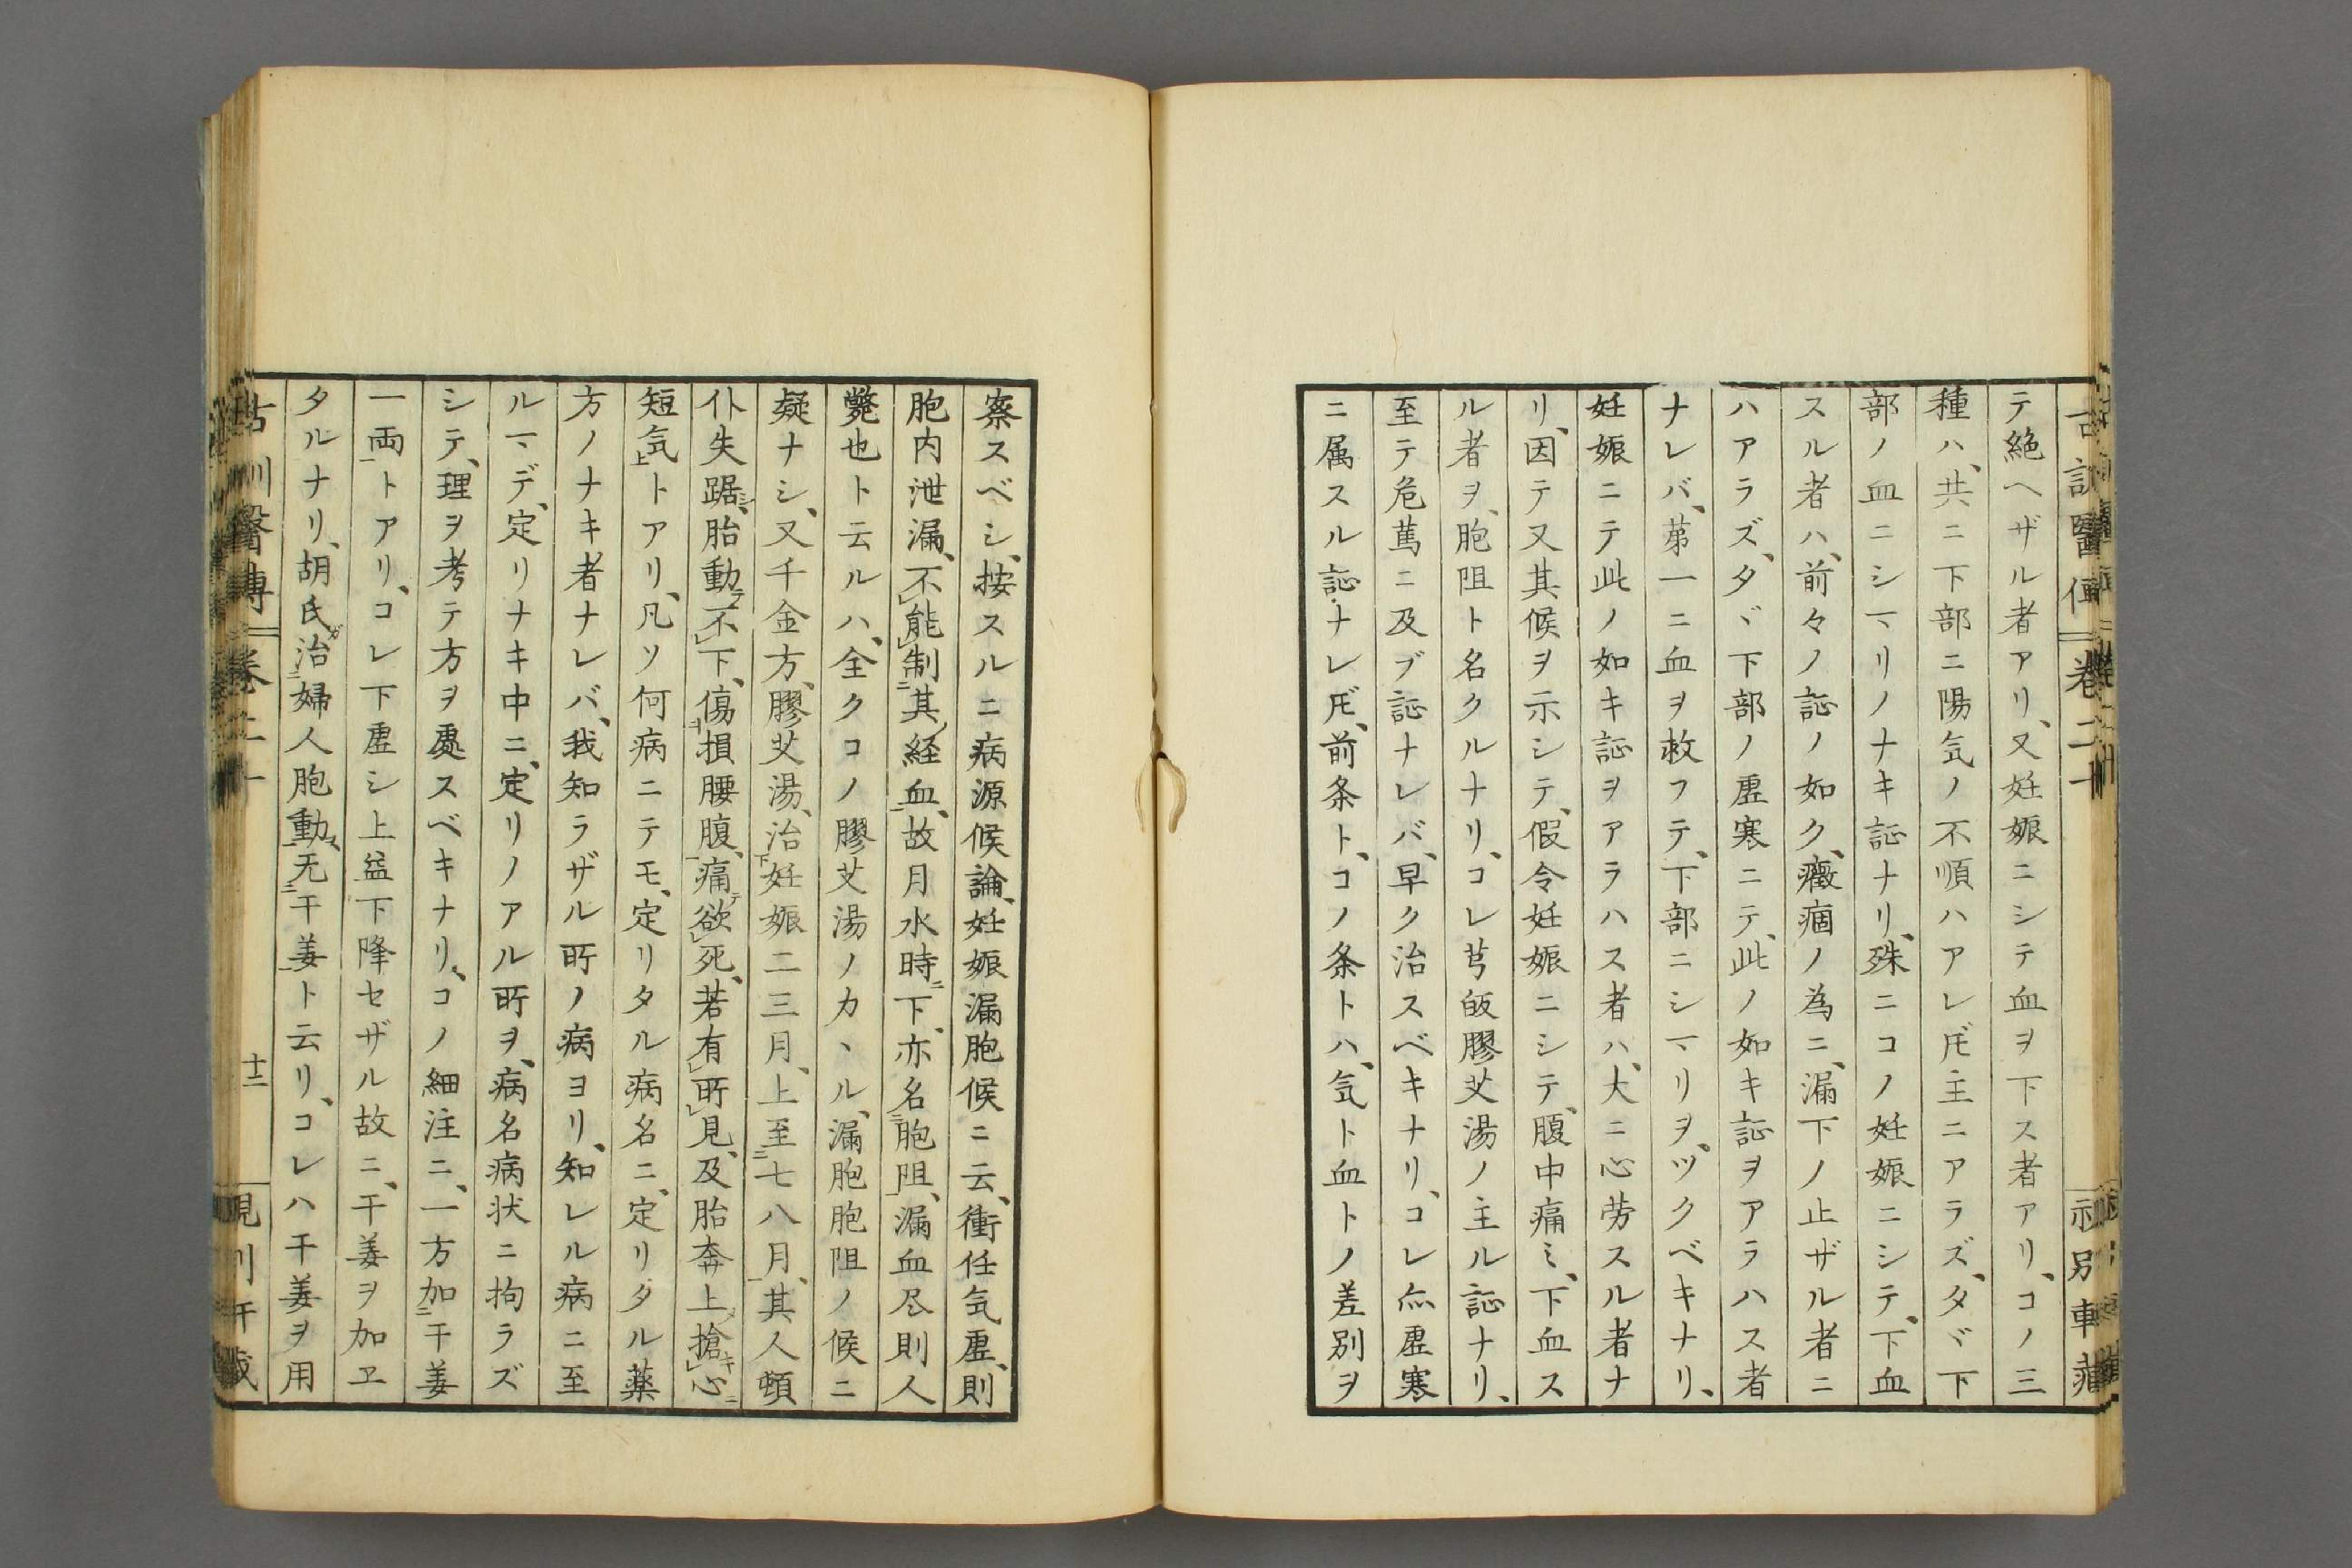 テ絶ヘザル者アリ、又妊娠ニシテ血ヲ下ス者アリ、コノ三
種ハ、共ニ下部ニ陽気ノ不順ハアレ𪜈主ニアラズ、タヾ下
部ノ血ニシマリノナキ証ナリ、殊ニコノ妊娠ニシテ、下血
スル者ハ、前々ノ証ノ如ク、癥痼ノ為ニ、漏下ノ止ザル者ニ
ハアラズ、タヾ下部ノ虚寒ニテ、此ノ如キ証ヲアラハス者
ナレバ、第一ニ血ヲ救フテ、下部ニシマリヲ、ツクベキナリ、
妊娠ニテ此ノ如キ証ヲアラハス者ハ、大ニ心労スル者ナ
リ、因テ又其候ヲ示シテ、假令妊娠ニシテ、腹中痛ミ、下血ス
ル者ヲ、胞阻ト名クルナリ、コレ芎皈膠艾湯ノ主ル証ナリ、
至テ危篤ニ及ブ証ナレバ、早ク治スベキナリ、コレ亦虚寒
ニ属スル証ナレ𪜈、前条ト、コノ条トハ、気ト血トノ差別ヲ
察スベシ、按スルニ病源候論、妊娠漏胞候ニ云、衝任気虚、則
胞内泄漏、不能制其経血、故月水時下、亦名胞阻、漏血尽則人
斃也ト云ルハ、全クコノ膠艾湯ノカヽル、漏胞胞阻ノ候ニ
疑ナシ、又千金方、膠艾湯、治妊娠二三月、上至七八月、其人頓
仆失踞、胎動不下、傷損腰腹、痛欲死、若有所見、及胎奔上搶心
短気トアリ、凡ソ何病ニテモ、定リタル病名ニ、定リタル薬
方ノナキ者ナレバ、我知ラザル所ノ病ヨリ、知レル病ニ至
ルマデ、定リナキ中ニ、定リノアル所ヲ、病名病状ニ拘ラズ
シテ、理ヲ考テ方ヲ處スベキナリ、コノ細注ニ、一方加干姜
一両トアリ、コレ下虚シ上益下降セザル故ニ、干姜ヲ加ヱ
タルナリ、胡氏治婦人胞動无干姜ト云リ、コレハ干姜ヲ用
十二